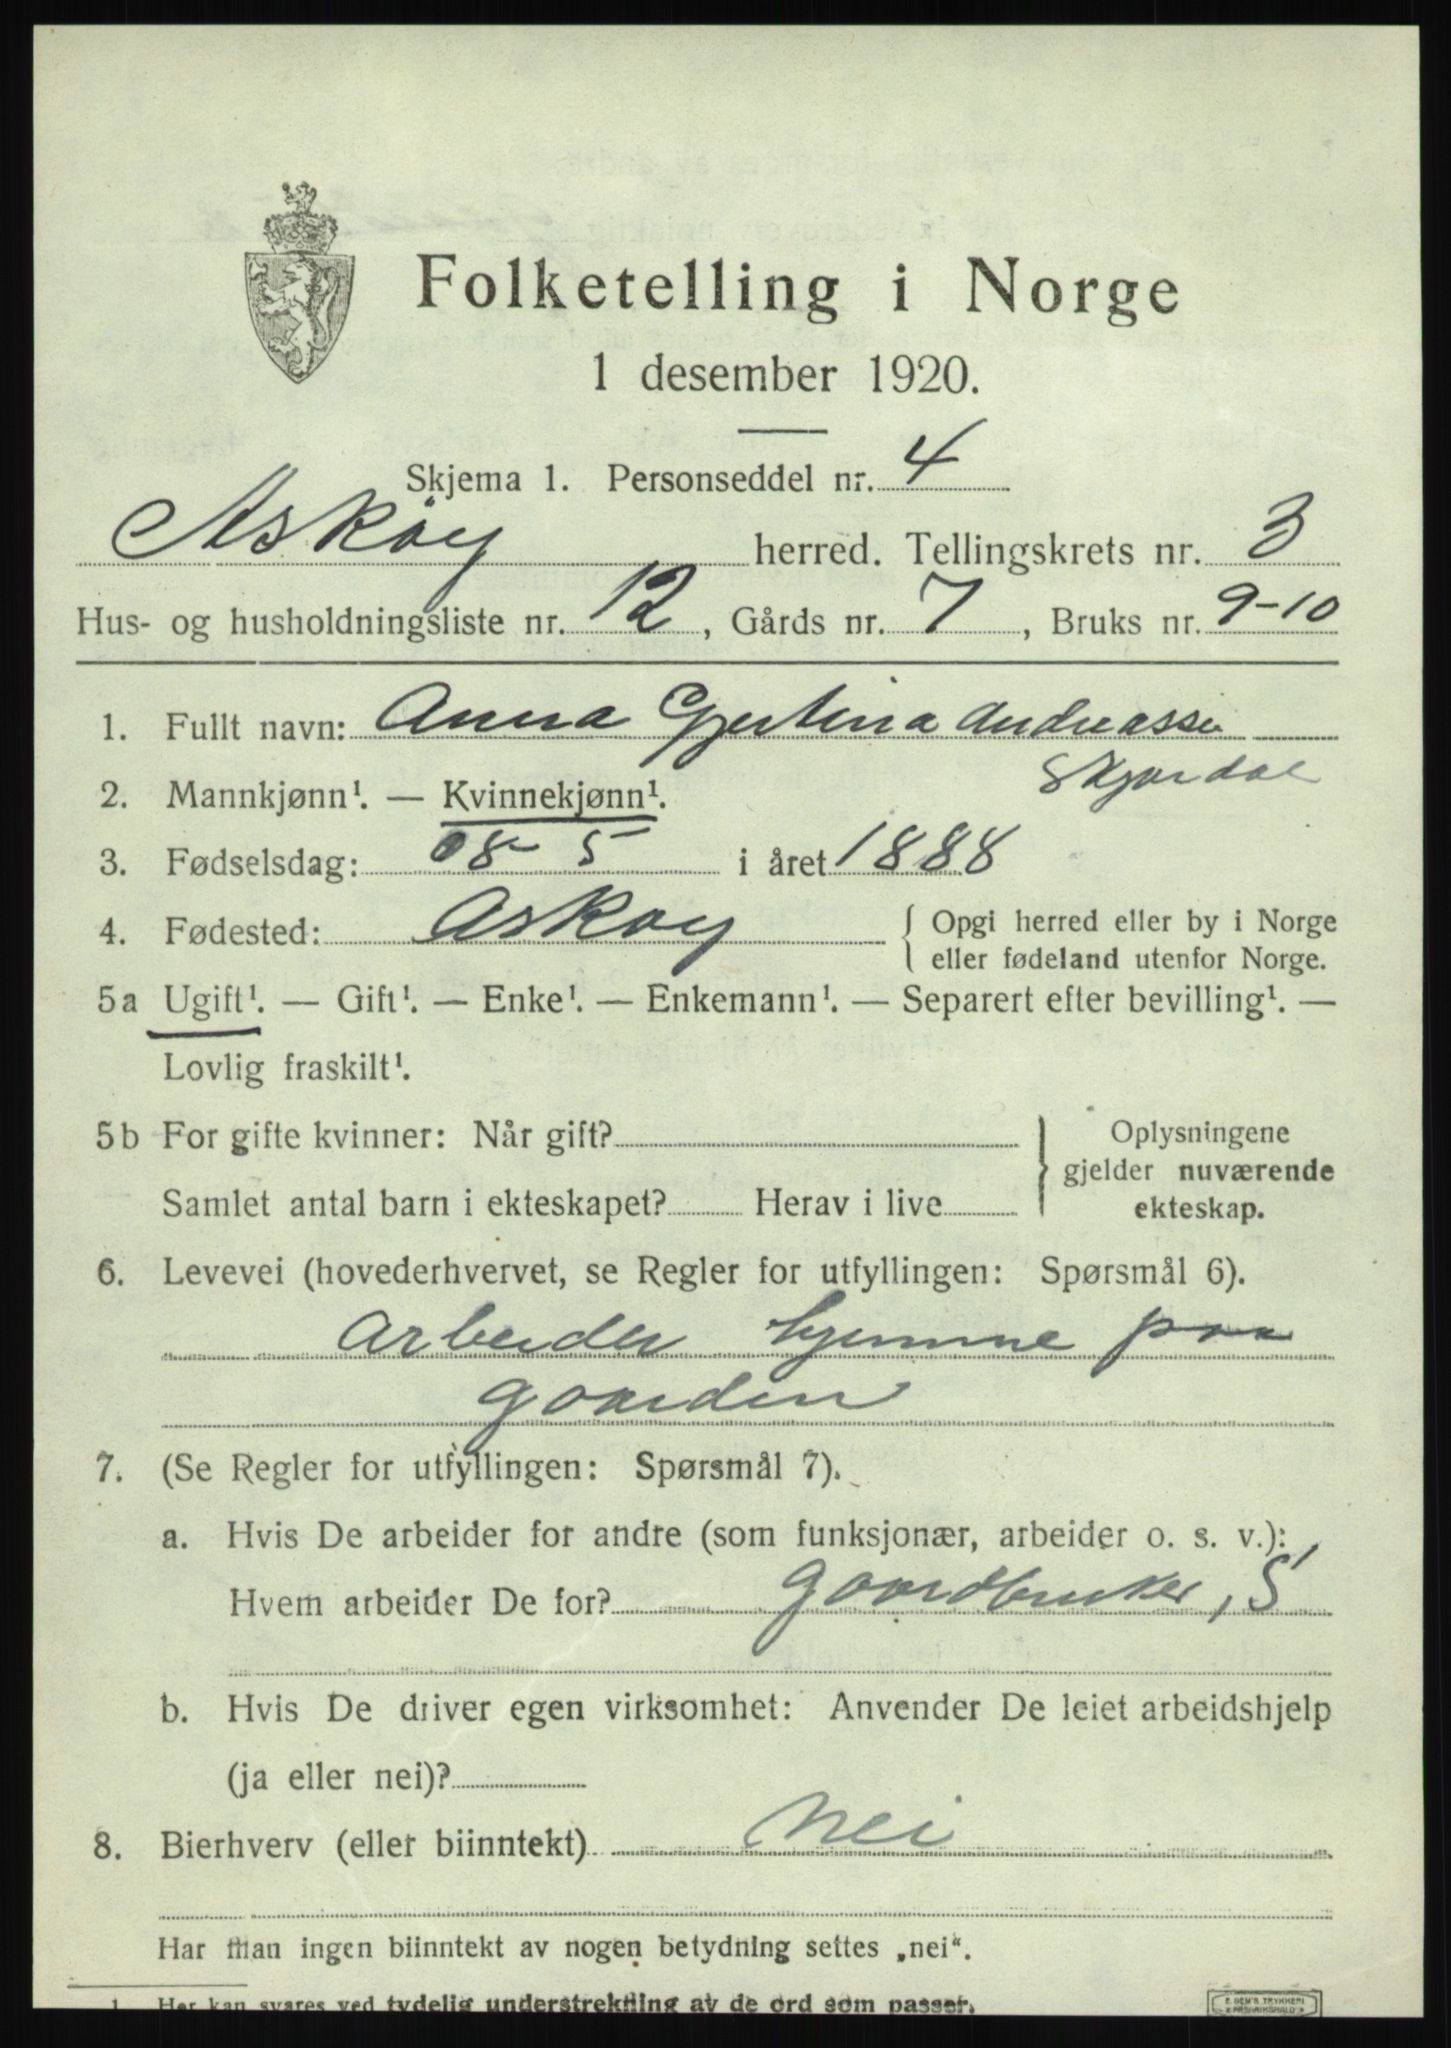 Folketelling i Norge
1 desember 1920.
Skjema 1. Personseddel nr. 4
Askøy herred. Tellingskrets nr. 3
Hus- og husholdningsliste nr. 12, Gårds nr. 7, Bruks nr. 9-10
1. Fullt navn: Anna Gjertina Andreassen
Skjordal
2. Mannkjønn¹. — Kvinnekjønn¹.
3. Fødselsdag: 08- 5 i året 1888
4. Fødested: Askøy { Opgi herred eller by i Norge
eller fødeland utenfor Norge.
5a Ugift¹. — Gift¹. — Enke¹. — Enkemann¹. — Separert efter bevilling¹. —
Lovlig fraskilt¹.
5b For gifte kvinner: Når gift? } Oplysningene
gjelder nuværende
Samlet antal barn i ekteskapet? Herav i live ekteskap.
6. Levevei (hovederhvervet, se Regler for utfyllingen: Spørsmål 6).
Arbeider hjemme paa
gaarden
7. (Se Regler for utfyllingen: Spørsmål 7).
a. Hvis De arbeider for andre (som funksjonær, arbeider o. s. v.):
Hvem arbeider De for? gaardbruker, S
b. Hvis De driver egen virksomhet: Anvender De leiet arbeidshjelp
(ja eller nei)?
8. Bierhverv (eller biinntekt) Nei
Har man ingen biinntekt av nogen betydning settes „nei“.
1. Her kan svares ved tydelig understrekning av de ord som passer.